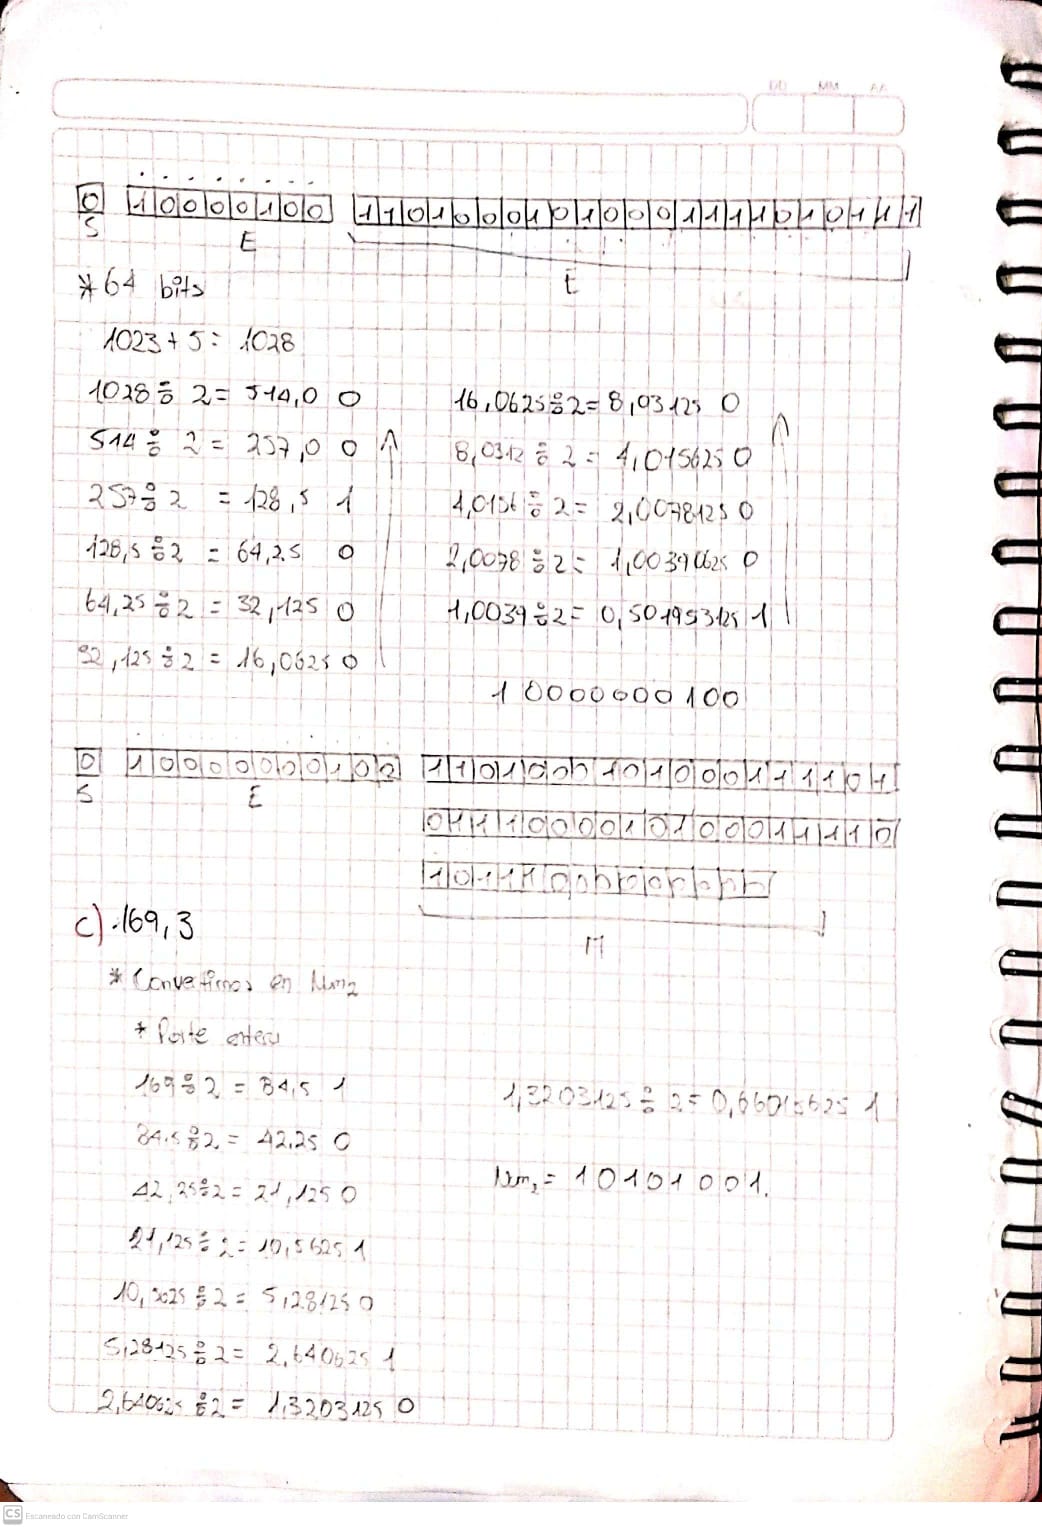 DD MM AA
0 10000100 11010001010001111010111
S E E
* 64 bits
1023 + 5 = 1028
1028 ÷ 2 = 514,0 0
514 ÷ 2 = 257,0 0
257 ÷ 2 = 128,5 1
128,5 ÷ 2 = 64,25 0
64,25 ÷ 2 = 32,125 0
32,125 ÷ 2 = 16,0625 0
16,0625 ÷ 2 = 8,03125 0
8,0312 ÷ 2 = 4,015625 0
4,0156 ÷ 2 = 2,0078125 0
2,0078 ÷ 2 = 1,00390625 0
1,0039 ÷ 2 = 0,501953125 1
10000000100
0 10000000100 1101000101000111101
S E
0111000010100011110
10111000000000
M
c) -169,3
* Convertimos en Num2
* Parte entera
169 ÷ 2 = 84,5 1
84,5 ÷ 2 = 42,25 0
42,25 ÷ 2 = 21,125 0
21,125 ÷ 2 = 10,5625 1
10,5625 ÷ 2 = 5,28125 0
5,28125 ÷ 2 = 2,640625 1
2,640625 ÷ 2 = 1,3203125 0
1,3203125 ÷ 2 = 0,66015625 1
Num2 = 10101001.
CS Escaneado con CamScanner